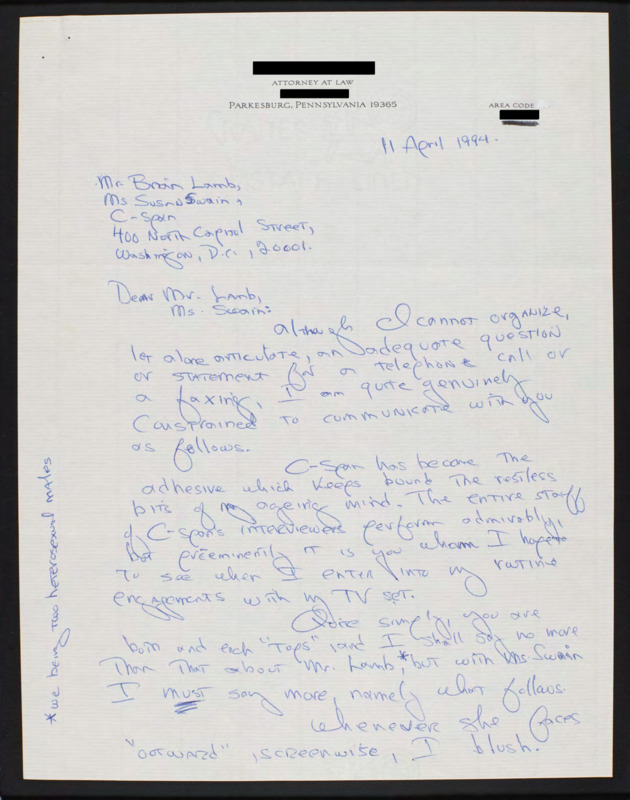 ATTORNEY AT LAW
PARKESBURG, PENNSYLVANIA 19365
AREA CODE
11 April 1994.
Mr. Brian Lamb,
Ms Susan Swain,
C-Span
400 North Capitol Street,
Washington, D.C., 20001.
Dear Mr. Lamb,
Ms. Swain:
although I cannot organize,
let alone articulate, an adequate question
or statement for a telephone call or
a faxing, I am quite genuinely
constrained to communicate with you
as follows.
C-Span has become the
adhesive which keeps bound the restless
bits of my ageing mind. The entire staff
of C-Span's interviewers perform admirably,
but preeminently it is you whom I hope to
to see when I enter into my routine
engagements with my TV set.
Quite simply, you are
both and each "tops" and I shall say no more
than that about Mr. Lamb,* but with Ms. Swain
I must say more, namely what follows.
whenever she faces
"outward", screenwise, I blush.
*we being two heterosexual males